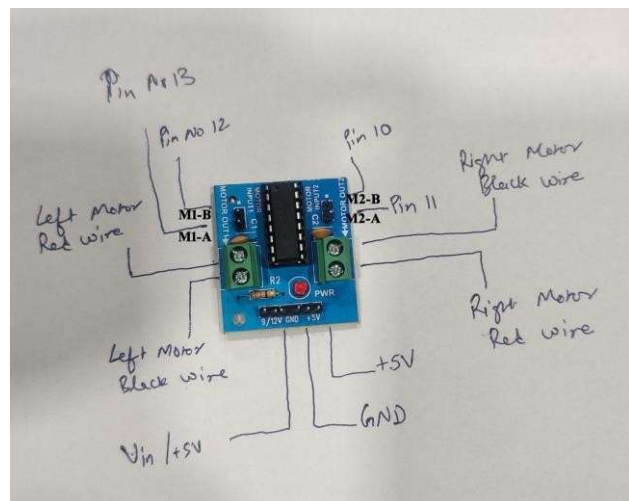 Pin No 13
Pin No 12
Pin 10
Right Motor
Black wire
Left Motor
Red wire
M1-B
M1-A
MOTOR OUT1
MOTOR
INPUT1
C1
MOTOR
INPUT2
C2
MOTOR OUT2
M2-B
M2-A
Pin 11
R2
PWR
9/12V GND +5V
Right Motor
Red wire
Left Motor
Black wire
+5V
GND
Vin /+5V